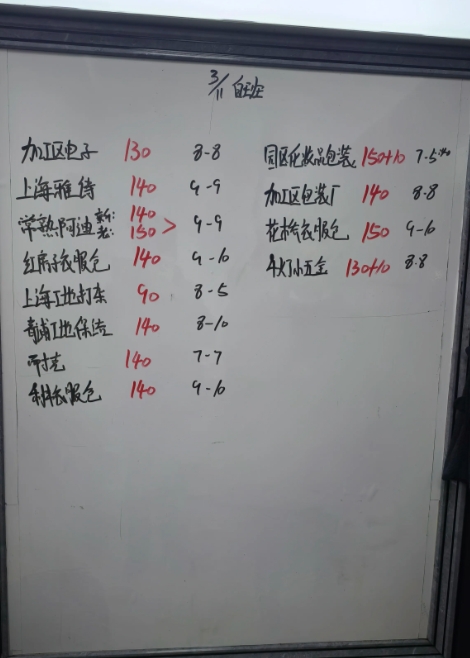 3/11 白班
加工区电子 130 8-8
上海雅诗 140 9-9
常熟阿迪 新: 140
老: 150 > 9-9
衣服包 140 9-10
上海工地打杂 90 8-5
青浦工地保洁 140 8-10
耐克 140 7-7
衣服包 140 9-10
园区化妆品包装 150+10 7-5
加工区包装厂 140 8-8
花桥衣服包 150 9-10
小五金 130+10 8-8